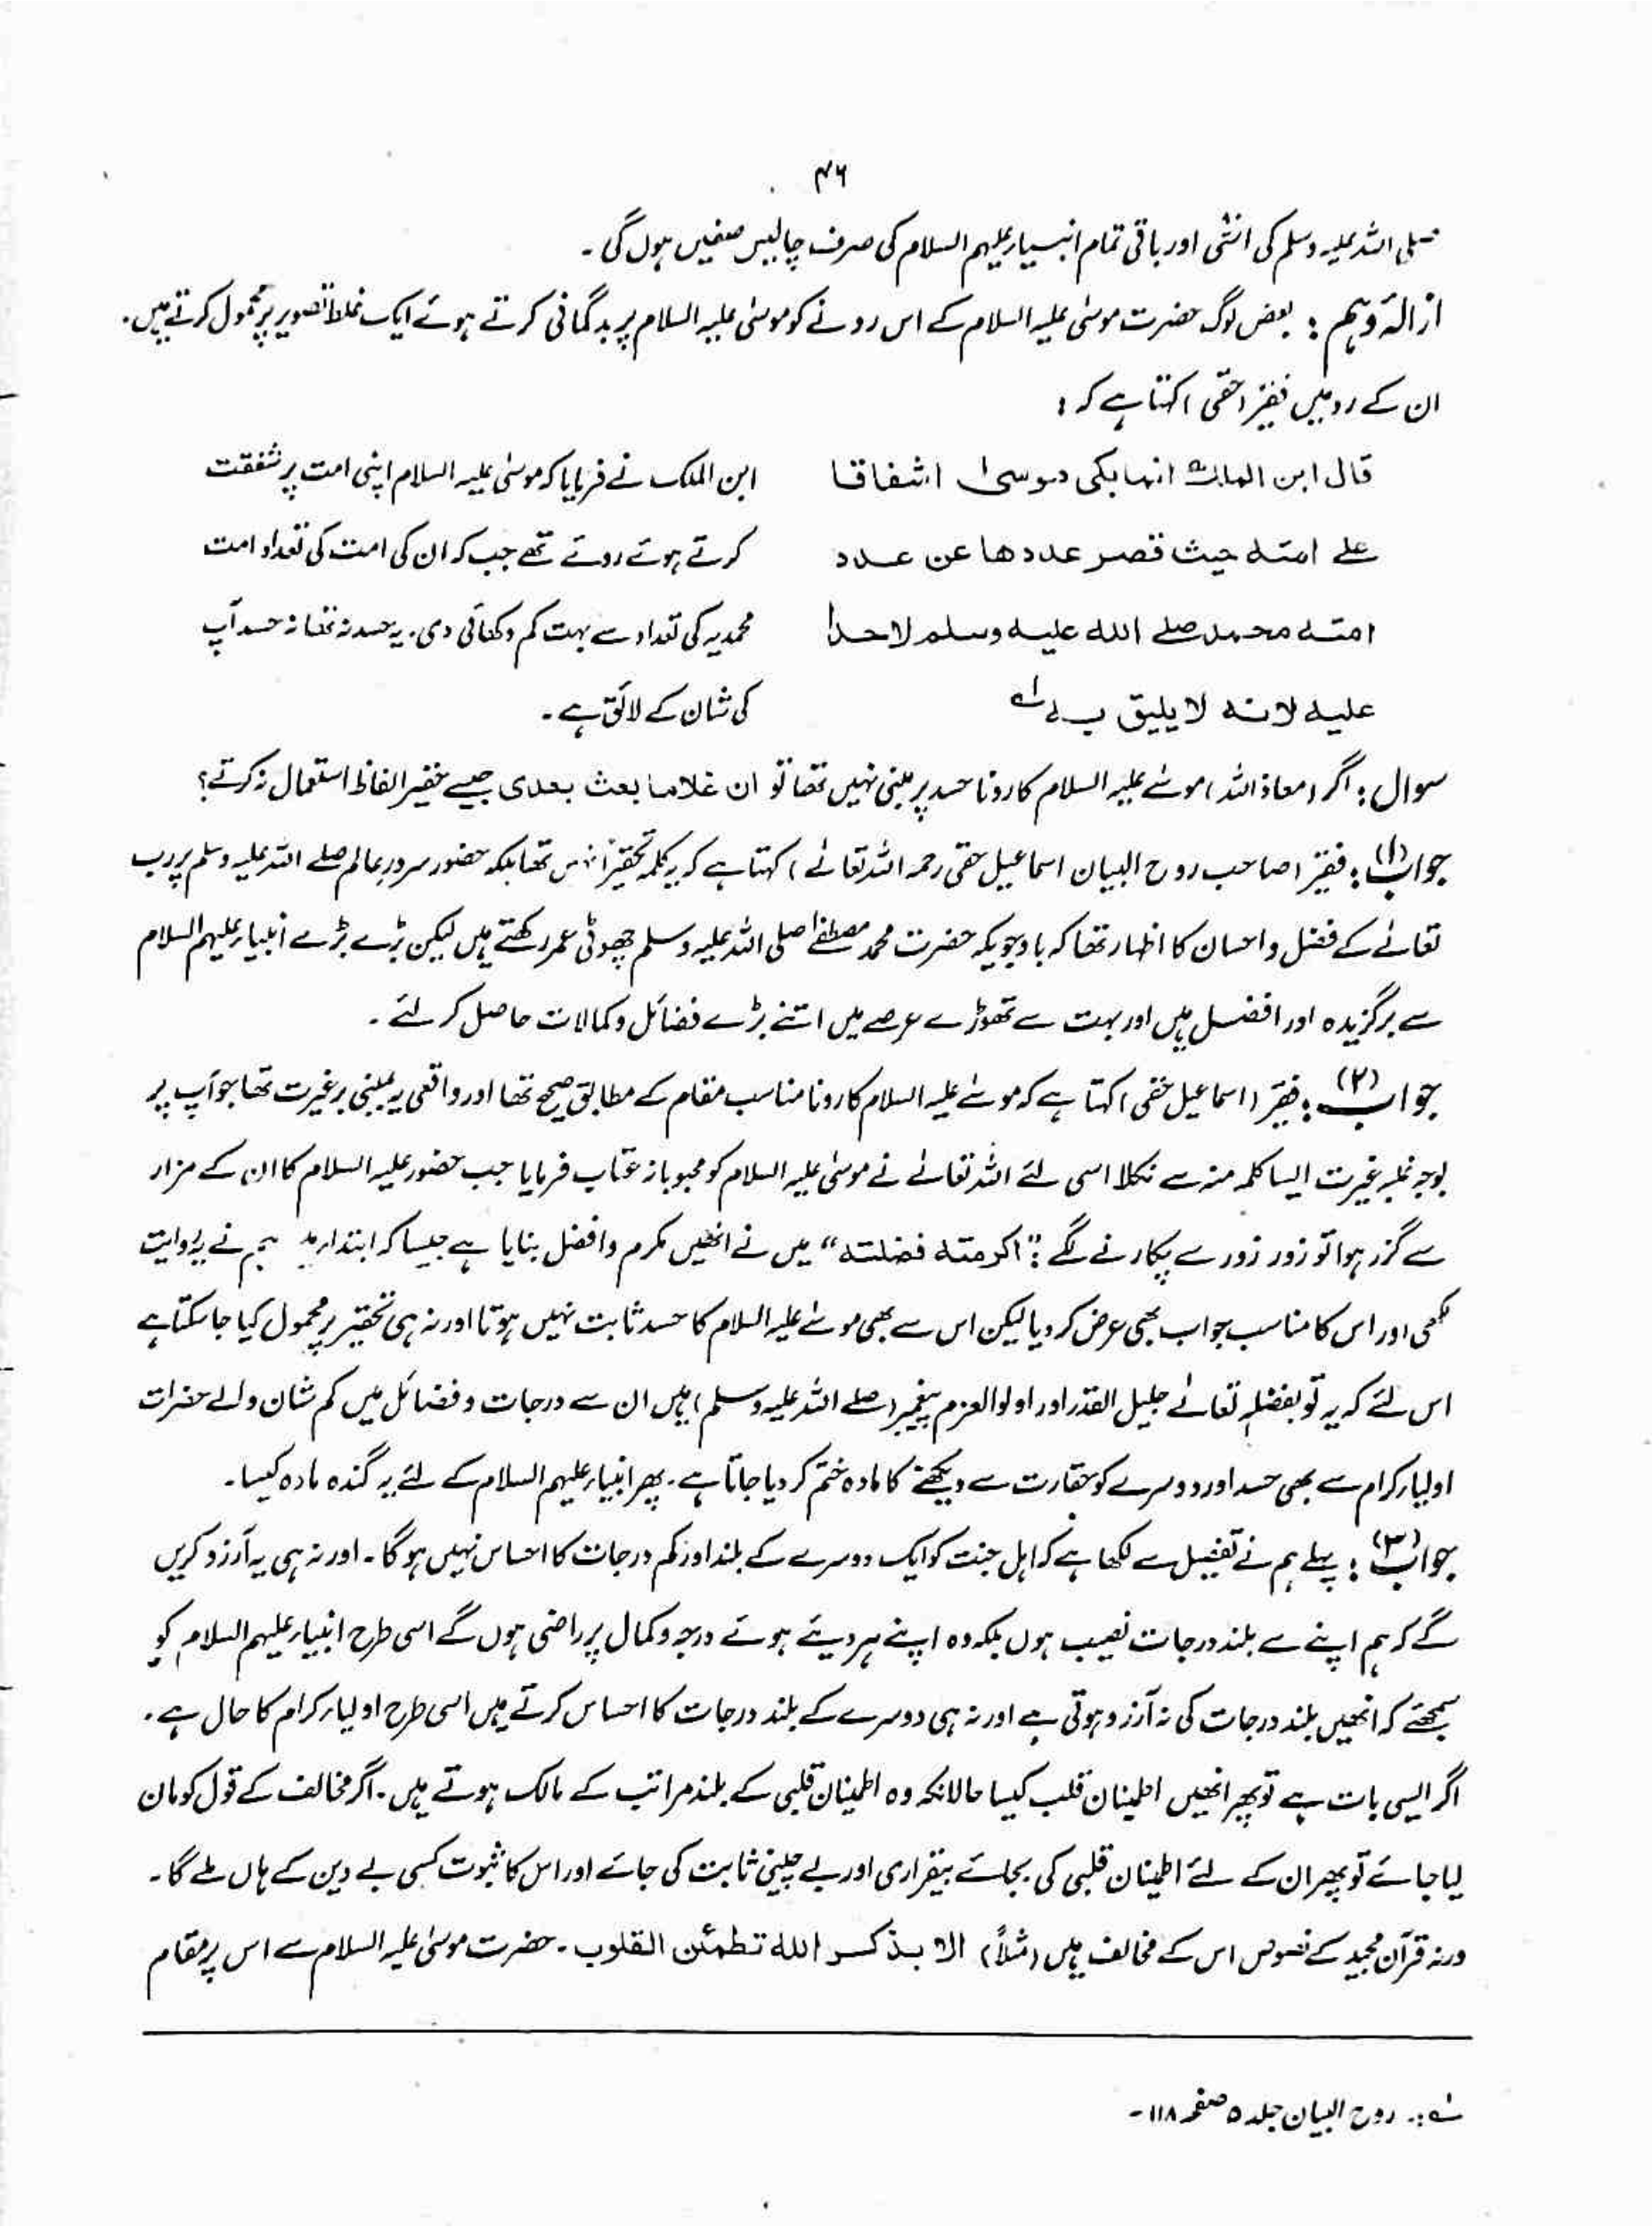 ۴۶
صلی اللہ علیہ وسلم کی انشی اور باقی تمام انبیاء علیہم السلام کی صرف چالیس صفیں ہوں گی ۔
ازالۂ وہم : بعض لوگ حضرت موسیٰ علیہ السلام کے اس رونے کو موسیٰ علیہ السلام پر بدگمانی کرتے ہوئے ایک غلط تصویر پر محمول کرتے ہیں.
ان کے رد میں فقیر (حقی) کہتا ہے کہ :
قال ابن الملك انما بكى موسىٰ اشفاقا
على امته حيث قصر عددها عن عدد
امته محمد صلے الله عليه وسلم لا حدا
عليه لانه لا يليق به ؎۱
ابن الملک نے فرمایا کہ موسیٰ علیہ السلام اپنی امت پر شفقت
کرتے ہوئے روئے تھے جب کہ ان کی امت کی تعداد امت
محمدیہ کی تعداد سے بہت کم دکھائی دی. یہ حسد نہ تھا نہ حسد آپ
کی شان کے لائق ہے ۔
سوال : اگر (معاذ اللہ) موسیٰ علیہ السلام کا رونا حسد پر مبنی نہیں تھا تو ان غلاما بعث بعدی جیسے حقیر الفاظ استعمال نہ کرتے؟
جواب (۱) : فقیر (صاحب روح البیان اسماعیل حقی رحمہ اللہ تعالےٰ) کہتا ہے کہ یہ کلمہ تحقیراً نہیں تھا بلکہ حضور سرورِ عالم صلے اللہ علیہ وسلم پر رب
تعالےٰ کے فضل و احسان کا اظہار تھا کہ باوجودیکہ حضرت محمد مصطفےٰ صلی اللہ علیہ وسلم چھوٹی عمر رکھتے ہیں لیکن بڑے بڑے انبیاء علیہم السلام
سے برگزیدہ اور افضل ہیں اور بہت سے تھوڑے عرصے میں اتنے بڑے فضائل و کمالات حاصل کر لئے ۔
جواب (۲) : فقیر (اسماعیل حقی) کہتا ہے کہ موسےٰ علیہ السلام کا رونا مناسب مقام کے مطابق صحیح تھا اور واقعی یہ مبنی بر غیرت تھا جو آپ پر
بوجہ غلبہ غیرت ایسا کلمہ منہ سے نکلا اسی لئے اللہ تعالےٰ نے موسیٰ علیہ السلام کو محبوبانہ عتاب فرمایا جب حضور علیہ السلام کا ان کے مزار
سے گزر ہوا تو زور زور سے پکارنے لگے : "اکرمته فضلته" میں نے انھیں مکرم و افضل بنایا ہے جیسا کہ ابتداء ہم نے یہ روایت
لکھی اور اس کا مناسب جواب بھی عرض کر دیا لیکن اس سے بھی موسےٰ علیہ السلام کا حسد ثابت نہیں ہوتا اور نہ ہی تحقیر پر محمول کیا جا سکتا ہے
اس لئے کہ یہ تو بفضلہٖ تعالےٰ جلیل القدر اور اولوالعزم پیغمبر (صلے اللہ علیہ وسلم) ہیں ان سے درجات و فضائل میں کم شان والے حضرات
اولیاء کرام سے بھی حسد اور دوسرے کو حقارت سے دیکھنے کا مادہ ختم کر دیا جاتا ہے. پھر انبیاء علیہم السلام کے لئے یہ گندہ مادہ کیسا ۔
جواب (۳) : پہلے ہم نے تفصیل سے لکھا ہے کہ اہل جنت کو ایک دوسرے کے بلند اور کم درجات کا احساس نہیں ہوگا ۔ اور نہ ہی یہ آرزو کریں
گے کہ ہم اپنے سے بلند درجات نصیب ہوں بلکہ وہ اپنے دیئے ہوئے درجہ و کمال پر راضی ہوں گے اسی طرح انبیاء علیہم السلام کو
سمجھئے کہ انھیں بلند درجات کی نہ آرزو ہوتی ہے اور نہ ہی دوسرے کے بلند درجات کا احساس کرتے ہیں اسی طرح اولیاء کرام کا حال ہے ۔
اگر ایسی بات ہے تو پھر انھیں اطمینان قلب کیسا حالانکہ وہ اطمینان قلبی کے بلند مراتب کے مالک ہوتے ہیں ۔ اگر مخالف کے قول کو مان
لیا جائے تو پھر ان کے لئے اطمینان قلبی کی بجائے بیقراری اور بے چینی ثابت کی جائے اور اس کا ثبوت کسی بے دین کے ہاں ملے گا ۔
ورنہ قرآن مجید کے نصوص اس کے مخالف ہیں (مثلاً) الا بذكر الله تطمئن القلوب ۔ حضرت موسیٰ علیہ السلام سے اس پر مقام
؎۱ :۔ روح البیان جلد ۵ صفحہ ۱۱۸ ۔